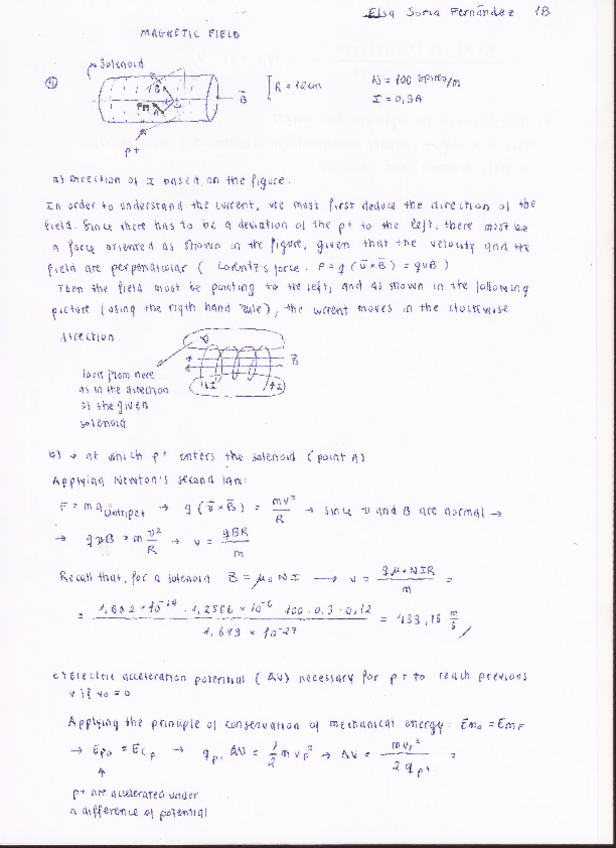 Elsa Soria Fernández 1B
MAGNETIC FIELD
Solenoid
R = 12cm
N = 100 spires/m
B
I = 0,3A
p+
a) Direction of I based on the figure.
In order to understand the current, we must first deduce the direction of the
field. Since there has to be a deviation of the p+ to the left, there must be
a force oriented as shown in the figure, given that the velocity and the
field are perpendicular ( Lorentz's force. F = q (v × B) = qvB )
Then the field must be pointing to the left, and as shown in the following
picture (using the rigth hand rule), the current moves in the clockwise
direction.
B
look from here
as in the direction
of the given
solenoid
b) v at which p+ enters the solenoid (point A)
Applying Newton's second law:
→ q (v × B) = mv²/R → since v and B are normal →
→ qvB = m v²/R → v = qBR/m
Recall that, for a solenoid B = μ₀NI → v = qμ₀NIR/m =
100 · 0,3 · 0,12
c) Electric acceleration potential (ΔV) necessary for p+ to reach previous
v if v₀ = 0
Applying the principle of conservation of mechanical energy: Em₀ = EmF
→ ΔV =
p+ are accelerated under
a difference of potential